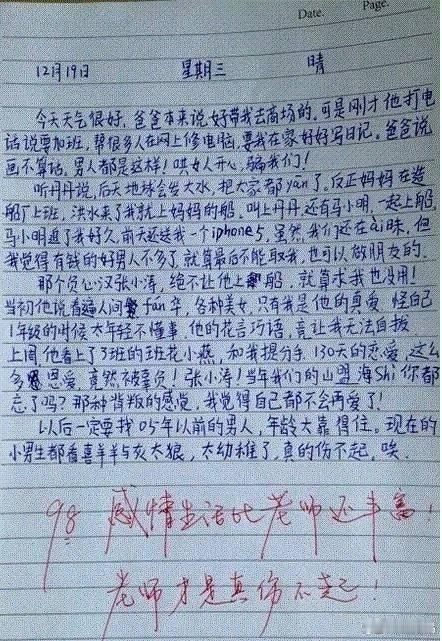 Date.
Page.
12月19日 星期三 晴
今天天气很好,爸爸本来说好带我去商场的,可是刚才他打电
话说要加班,帮很多人在网上修电脑,要我在家好好写日记。爸爸说
画不算话,男人都是这样!哄女人开心,骗我们!
听丹丹说,后天地球会发大水,把大家都yān了。反正妈妈在造
船厂上班,洪水来了我就上妈妈的船。叫上丹丹,还有马小明,一起上船,
马小明追了我好久,前天还送我一个iphone5,虽然我们还在ai昧,但
我觉得有钱的好男人不多了,就算最后不能取我,也可以做朋友的。
那个负心汉张小涛,绝不让他上船,就算求我也没用!
当初他说看遍人间fán华,各种美女,只有我是他的真爱,怪自己
1年级的时候太年轻不懂事,他的花言巧语,竟让我无法自拔
上周他看上了3班的班花小燕,和我提分手,130天的恋爱,这么
多恩爱,竟然不被辜负!张小涛!当年我们的山盟海Shi你都
忘了吗?那种背叛的感觉,我觉得自己都不会再爱了!
以后一定要找05年以前的男人,年龄大靠得住。现在的
小男生都看喜羊羊与灰太狼,太幼稚了,真的伤不起,唉.
98 感情生活比老师还丰富!
老师才是真伤不起!